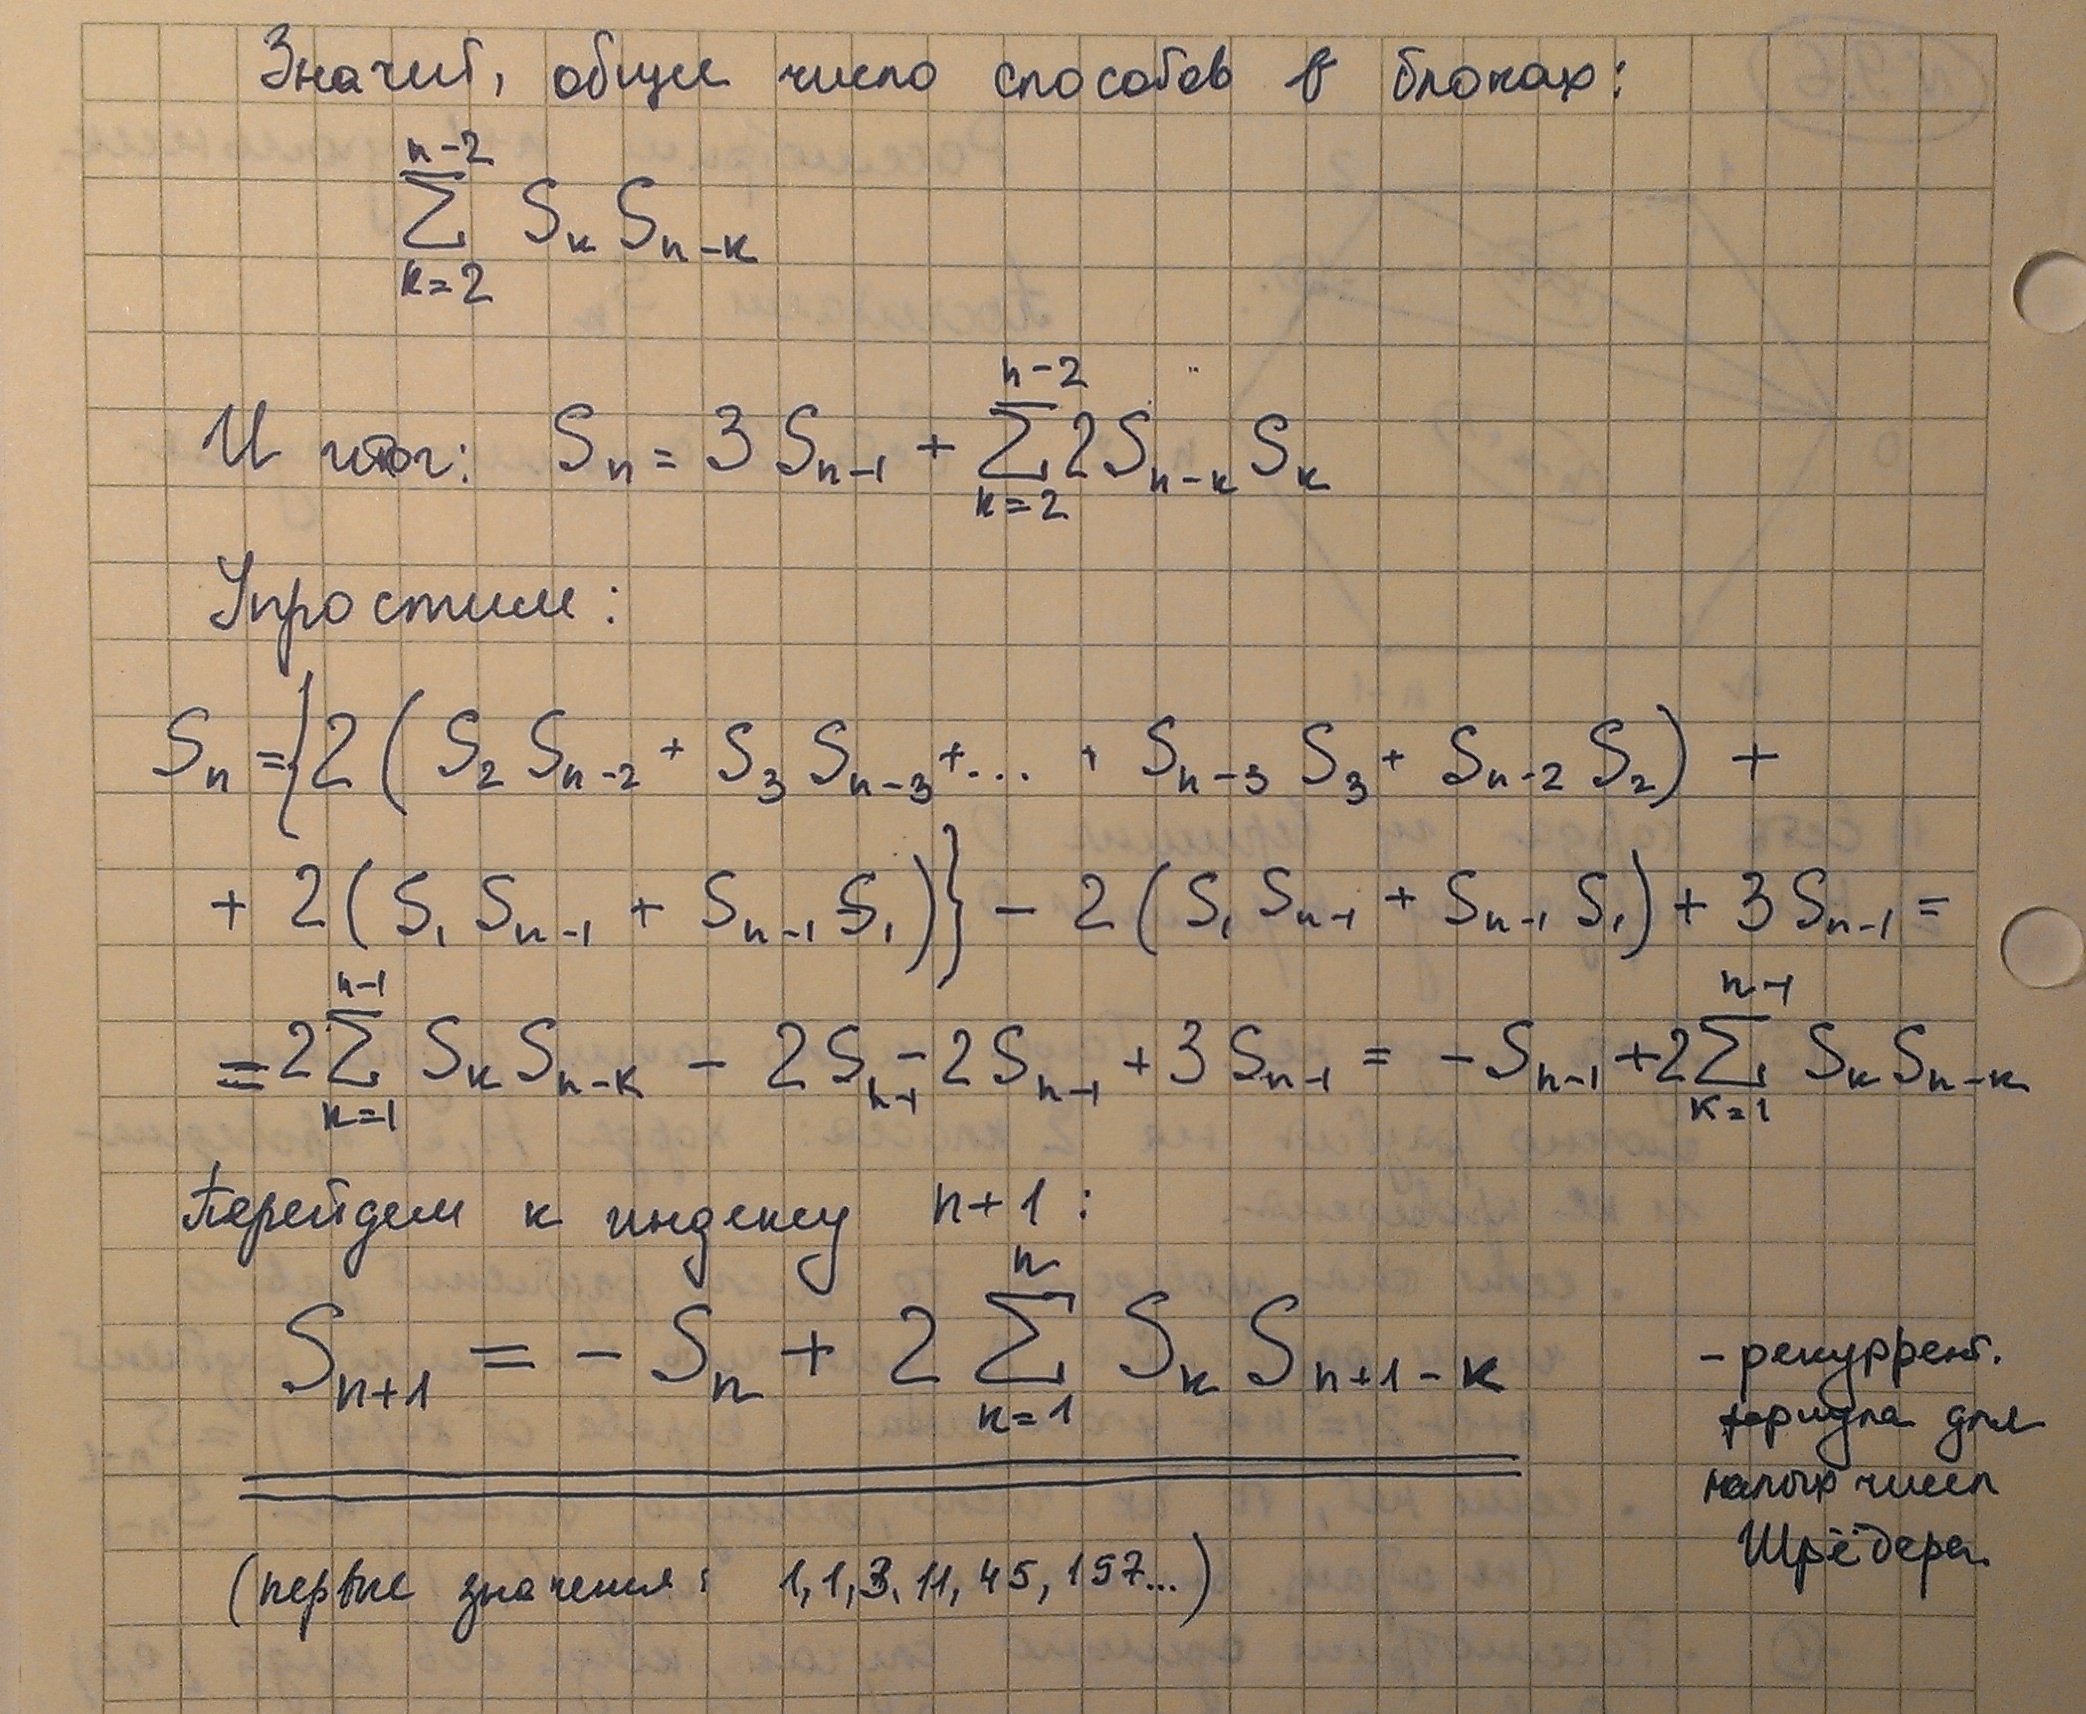 Значит, общее число способов в блоках:
\sum_{k=2}^{n-2} S_k S_{n-k}
И итог: S_n = 3S_{n-1} + \sum_{k=2}^{n-2} 2S_{n-k} S_k
Упростим:
S_n = {2(S_2 S_{n-2} + S_3 S_{n-3} + ... + S_{n-3} S_3 + S_{n-2} S_2) +
+ 2(S_1 S_{n-1} + S_{n-1} S_1)} - 2(S_1 S_{n-1} + S_{n-1} S_1) + 3S_{n-1} =
= 2\sum_{k=1}^{n-1} S_k S_{n-k} - 2S_{n-1} - 2S_{n-1} + 3S_{n-1} = -S_{n-1} + 2\sum_{k=1}^{n-1} S_k S_{n-k}
Перейдем к индексу n+1:
S_{n+1} = -S_n + 2\sum_{k=1}^{n} S_k S_{n+1-k}
- рекуррент.
формула для
малых чисел
Шрёдера.
(первые значения: 1, 1, 3, 11, 45, 197...)